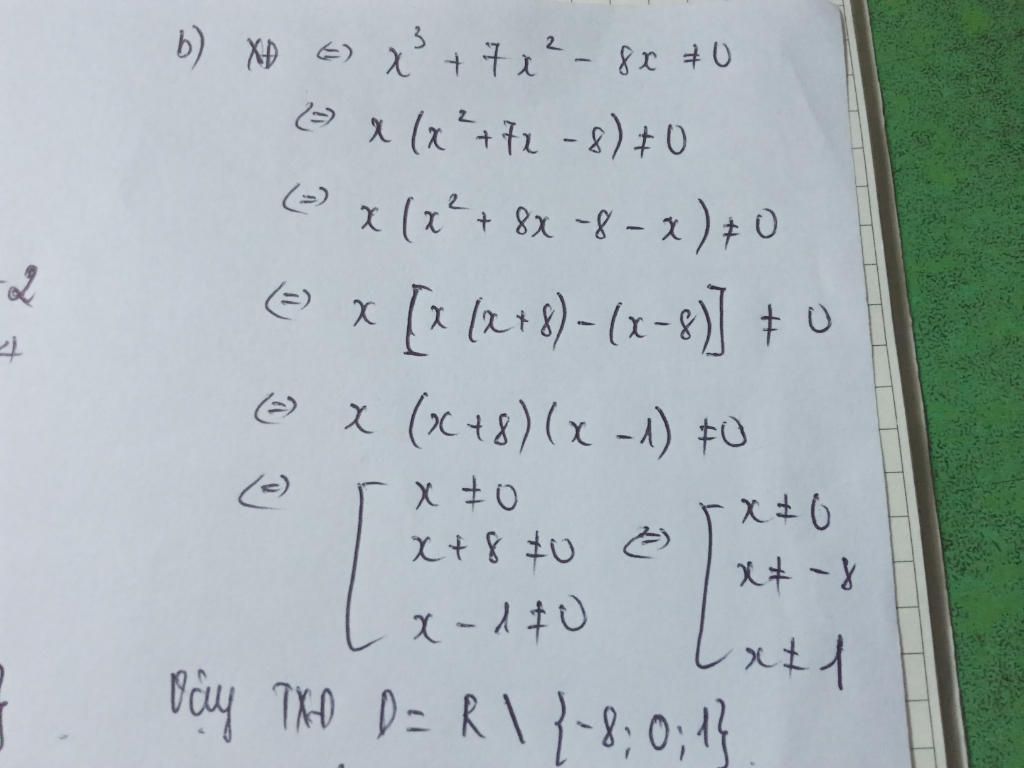 b) XĐ ⇔ x³ + 7x² - 8x ≠ 0
⇔ x (x² + 7x - 8) ≠ 0
⇔ x (x² + 8x - 8 - x) ≠ 0
⇔ x [x (x+8) - (x-8)] ≠ 0
⇔ x (x+8)(x - 1) ≠ 0
⇔ [ x ≠ 0
x + 8 ≠ 0
x - 1 ≠ 0
⇔ [ x ≠ 0
x ≠ -8
x ≠ 1
Vậy TXĐ D = R \ {-8; 0; 1}
-2